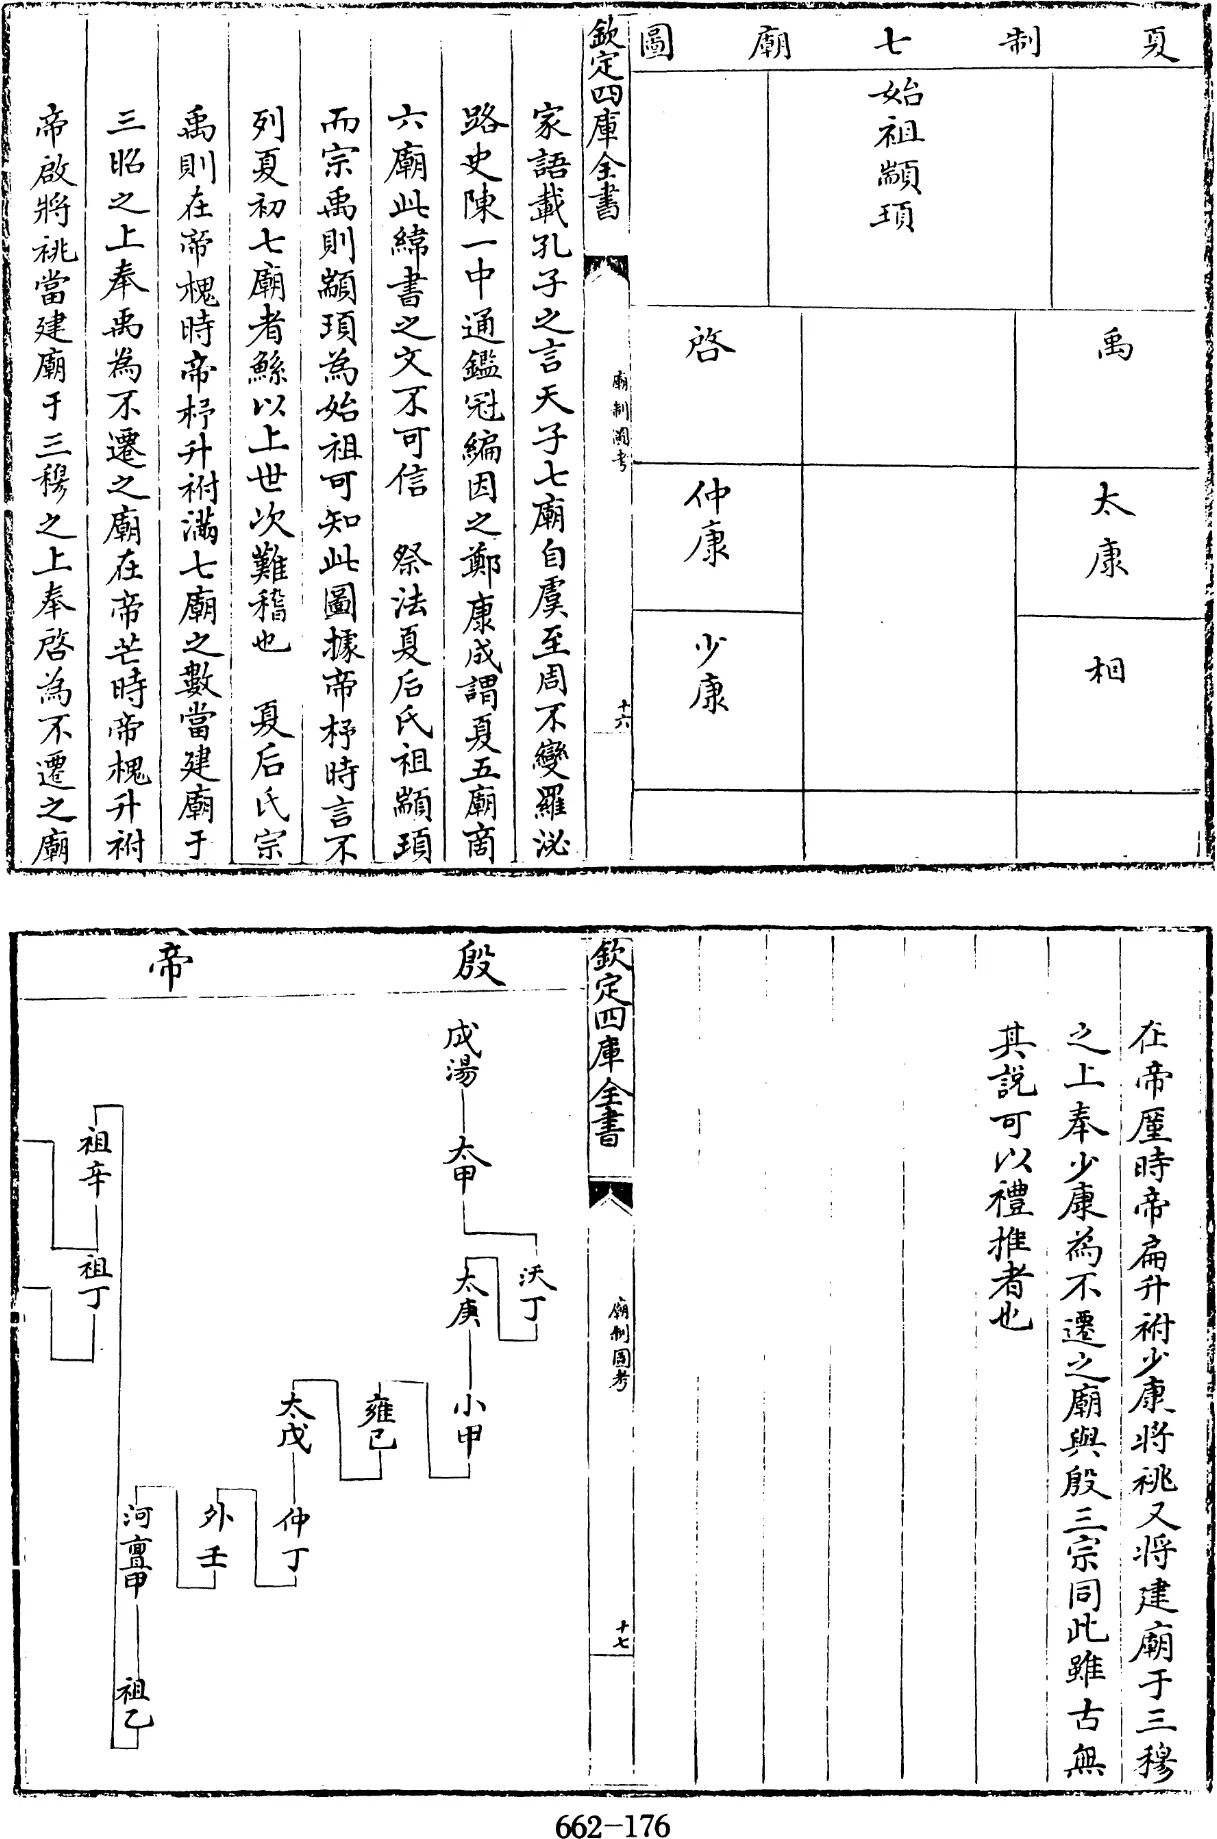 夏制七廟圖
始祖顓頊
禹
啓
太康
仲康
相
少康
欽定四庫全書
廟制圖考
十六
家語載孔子之言天子七廟自虞至周不變羅泌
路史陳一中通鑑冠編因之鄭康成謂夏五廟商
六廟此緯書之文不可信 祭法夏后氏祖顓頊
而宗禹則顓頊為始祖可知此圖據帝杼時言不
列夏初七廟者鯀以上世次難稽也 夏后氏宗
禹則在帝槐時帝杼升祔滿七廟之數當建廟于
三昭之上奉禹為不遷之廟在帝芒時帝槐升祔
帝啟將祧當建廟于三穆之上奉啓為不遷之廟
在帝廑時帝扃升祔少康將祧又將建廟于三穆
之上奉少康為不遷之廟與殷三宗同此雖古無
其說可以禮推者也
欽定四庫全書
廟制圖考
十七
殷帝
成湯
太甲
沃丁
太庚
小甲
雍己
太戊
仲丁
外壬
河亶甲
祖乙
祖辛
祖丁
662-176